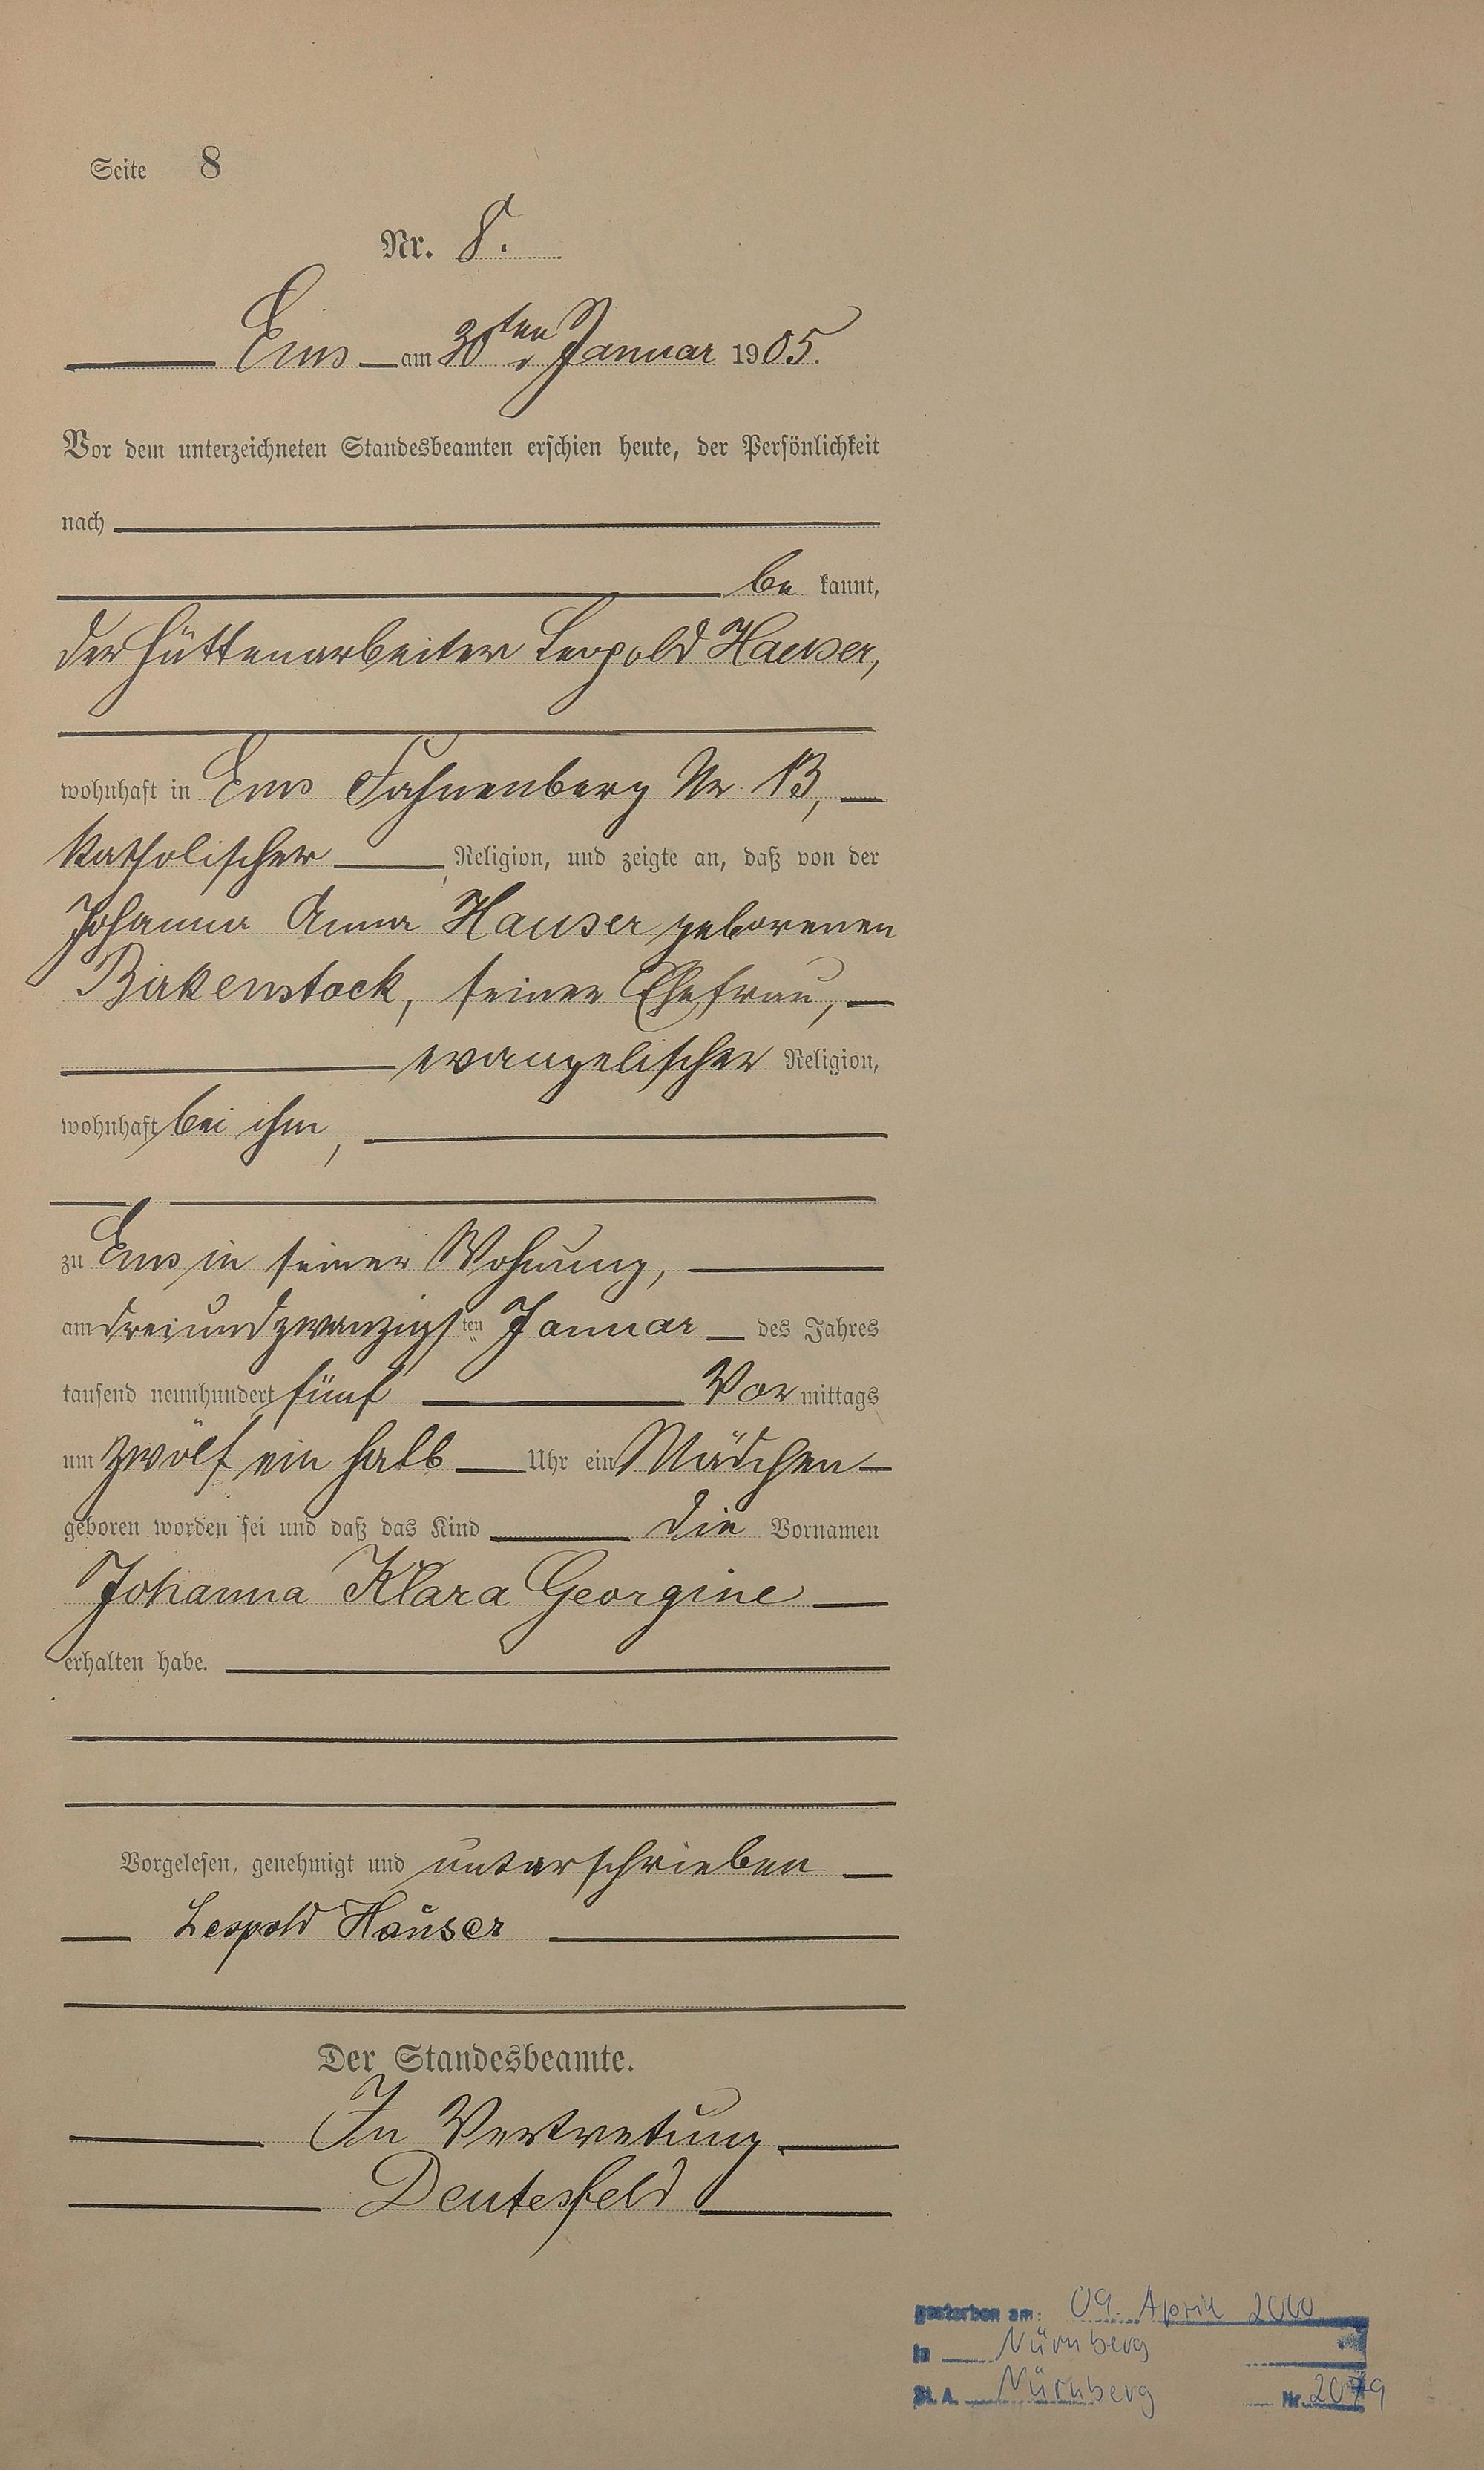 Seite 8
Nr. 8.
Ems am 30ten Januar 1905.
Vor dem unterzeichneten Standesbeamten erschien heute, der Persönlichkeit
nach
be kannt,
der Hüttenarbeiter Leopold Hauser,
wohnhaft in Ems Fahnenberg Nr. 13,
katholischer Religion, und zeigte an, daß von der
Johanna Anna Hauser geborenen
Birkenstock, seiner Ehefrau,
evangelischer Religion,
wohnhaft bei ihm,
zu Ems in seiner Wohnung,
am dreiundzwanzigsten Januar des Jahres
tausend neunhundert fünf Vor mittags
um zwölf ein halb Uhr ein Mädchen
geboren worden sei und daß das Kind die Vornamen
Johanna Klara Georgine
erhalten habe.
Vorgelesen, genehmigt und unterschrieben
Leopold Hauser
Der Standesbeamte.
In Vertretung.
Deutesfeld
gestorben am: 09. April 2000
in Nürnberg
St. A. Nürnberg Nr. 2079